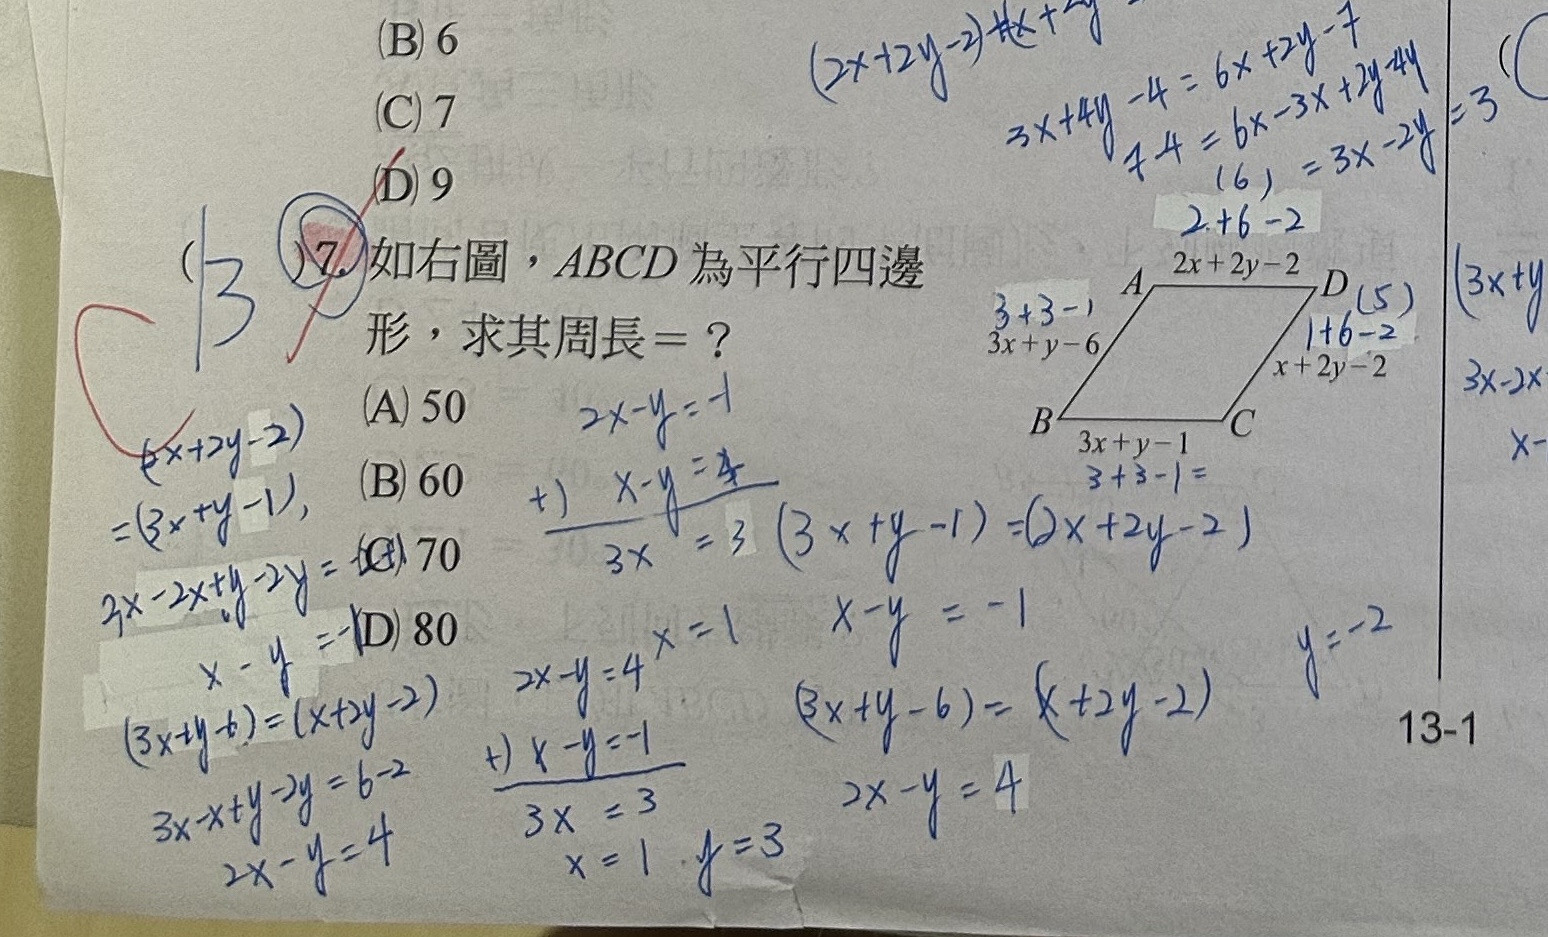 (B) 6
(C) 7
(D) 9
(2x+2y-2)
3x+4y-4=6x+2y-7
7-4=6x-3x+2y-4y
(6) =3x-2y=3
2+6-2
( 13 )7. 如右圖，ABCD 為平行四邊
形，求其周長＝？
(A) 50
(B) 60
(C) 70
(D) 80
A 2x+2y-2 D
3+3-1
3x+y-6
(5)
1+6-2
x+2y-2
B 3x+y-1 C
3+3-1=
(2x+2y-2)
=(3x+y-1),
3x-2x+y-2y=
x-y=-1
(3x+y-6)=(x+2y-2)
3x-x+y-2y=6-2
2x-y=4
2x-y=-1
+) x-y=4
3x =3
x=1
2x-y=4
+) x-y=-1
3x =3
x=1 y=3
(3x+y-1)=(2x+2y-2)
x-y=-1
(3x+y-6)=(x+2y-2)
2x-y=4
y=-2
(3x+y
3x-2x
x-
13-1